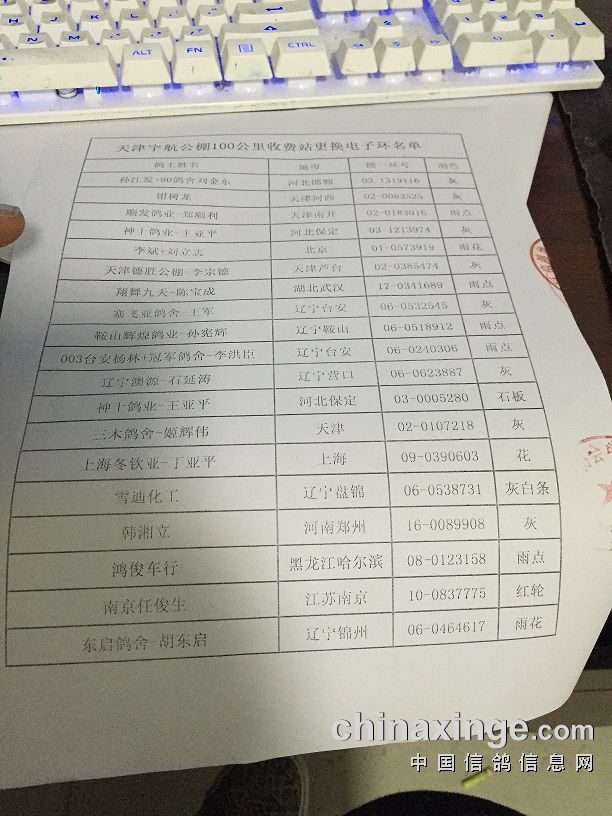 ALT FN CTRL
天津宇航公棚100公里收费站更换电子环名单
鸽主姓名 地市 统一环号 羽色
孙江发+90鸽舍刘金东 河北邯郸 03-1319116 灰
钳树龙 天津河西 02-0083525 灰
顺发鸽业-郑顺利 天津南开 02-0183016 雨点
神十鸽业-王亚平 河北保定 03-1213974 灰
李斌+刘立志 北京 01-0573919 雨花
天津德胜公棚-李宗德 天津芦台 02-0385474 灰
翔舞九天-陈宝成 湖北武汉 17-0341689 雨点
塞飞亚鸽舍-王军 辽宁台安 06-0532545 灰
鞍山辉煌鸽业-孙宪辉 辽宁鞍山 06-0518912 雨点
003台安杨林+冠军鸽舍-李洪臣 辽宁台安 06-0240306 雨点
辽宁澳源-石延涛 辽宁营口 06-0623887 灰
神十鸽业-王亚平 河北保定 03-0005280 石板
三木鸽舍-姬辉伟 天津 02-0107218 灰
上海冬钦亚-丁亚平 上海 09-0390603 花
雪迪化工 辽宁盘锦 06-0538731 灰白条
韩湘立 河南郑州 16-0089908 灰
鸿俊车行 黑龙江哈尔滨 08-0123158 雨点
南京任俊生 江苏南京 10-0837775 红轮
东启鸽舍-胡东启 辽宁锦州 06-0464617 雨花
chinaxinge.com
中国信鸽信息网